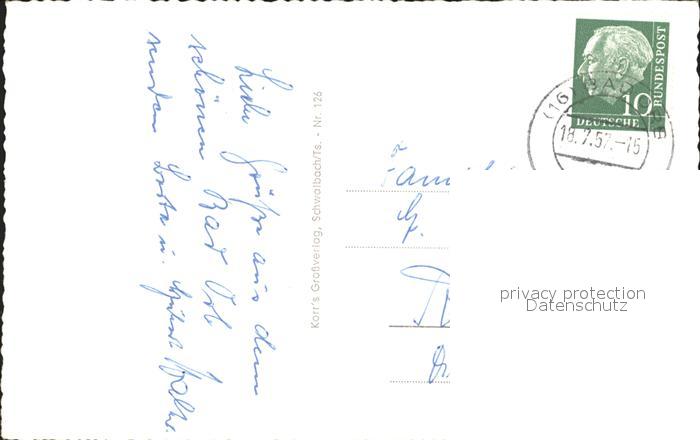 Liebe Grüße aus dem
schönen Bad Orb
senden Lotte u.
Korr's Großverlag, Schwalbach/Ts. - Nr. 126
10
DEUTSCHE
BUNDESPOST
(16) BAD
18.7.57.-15
Fami
privacy protection
Datenschutz